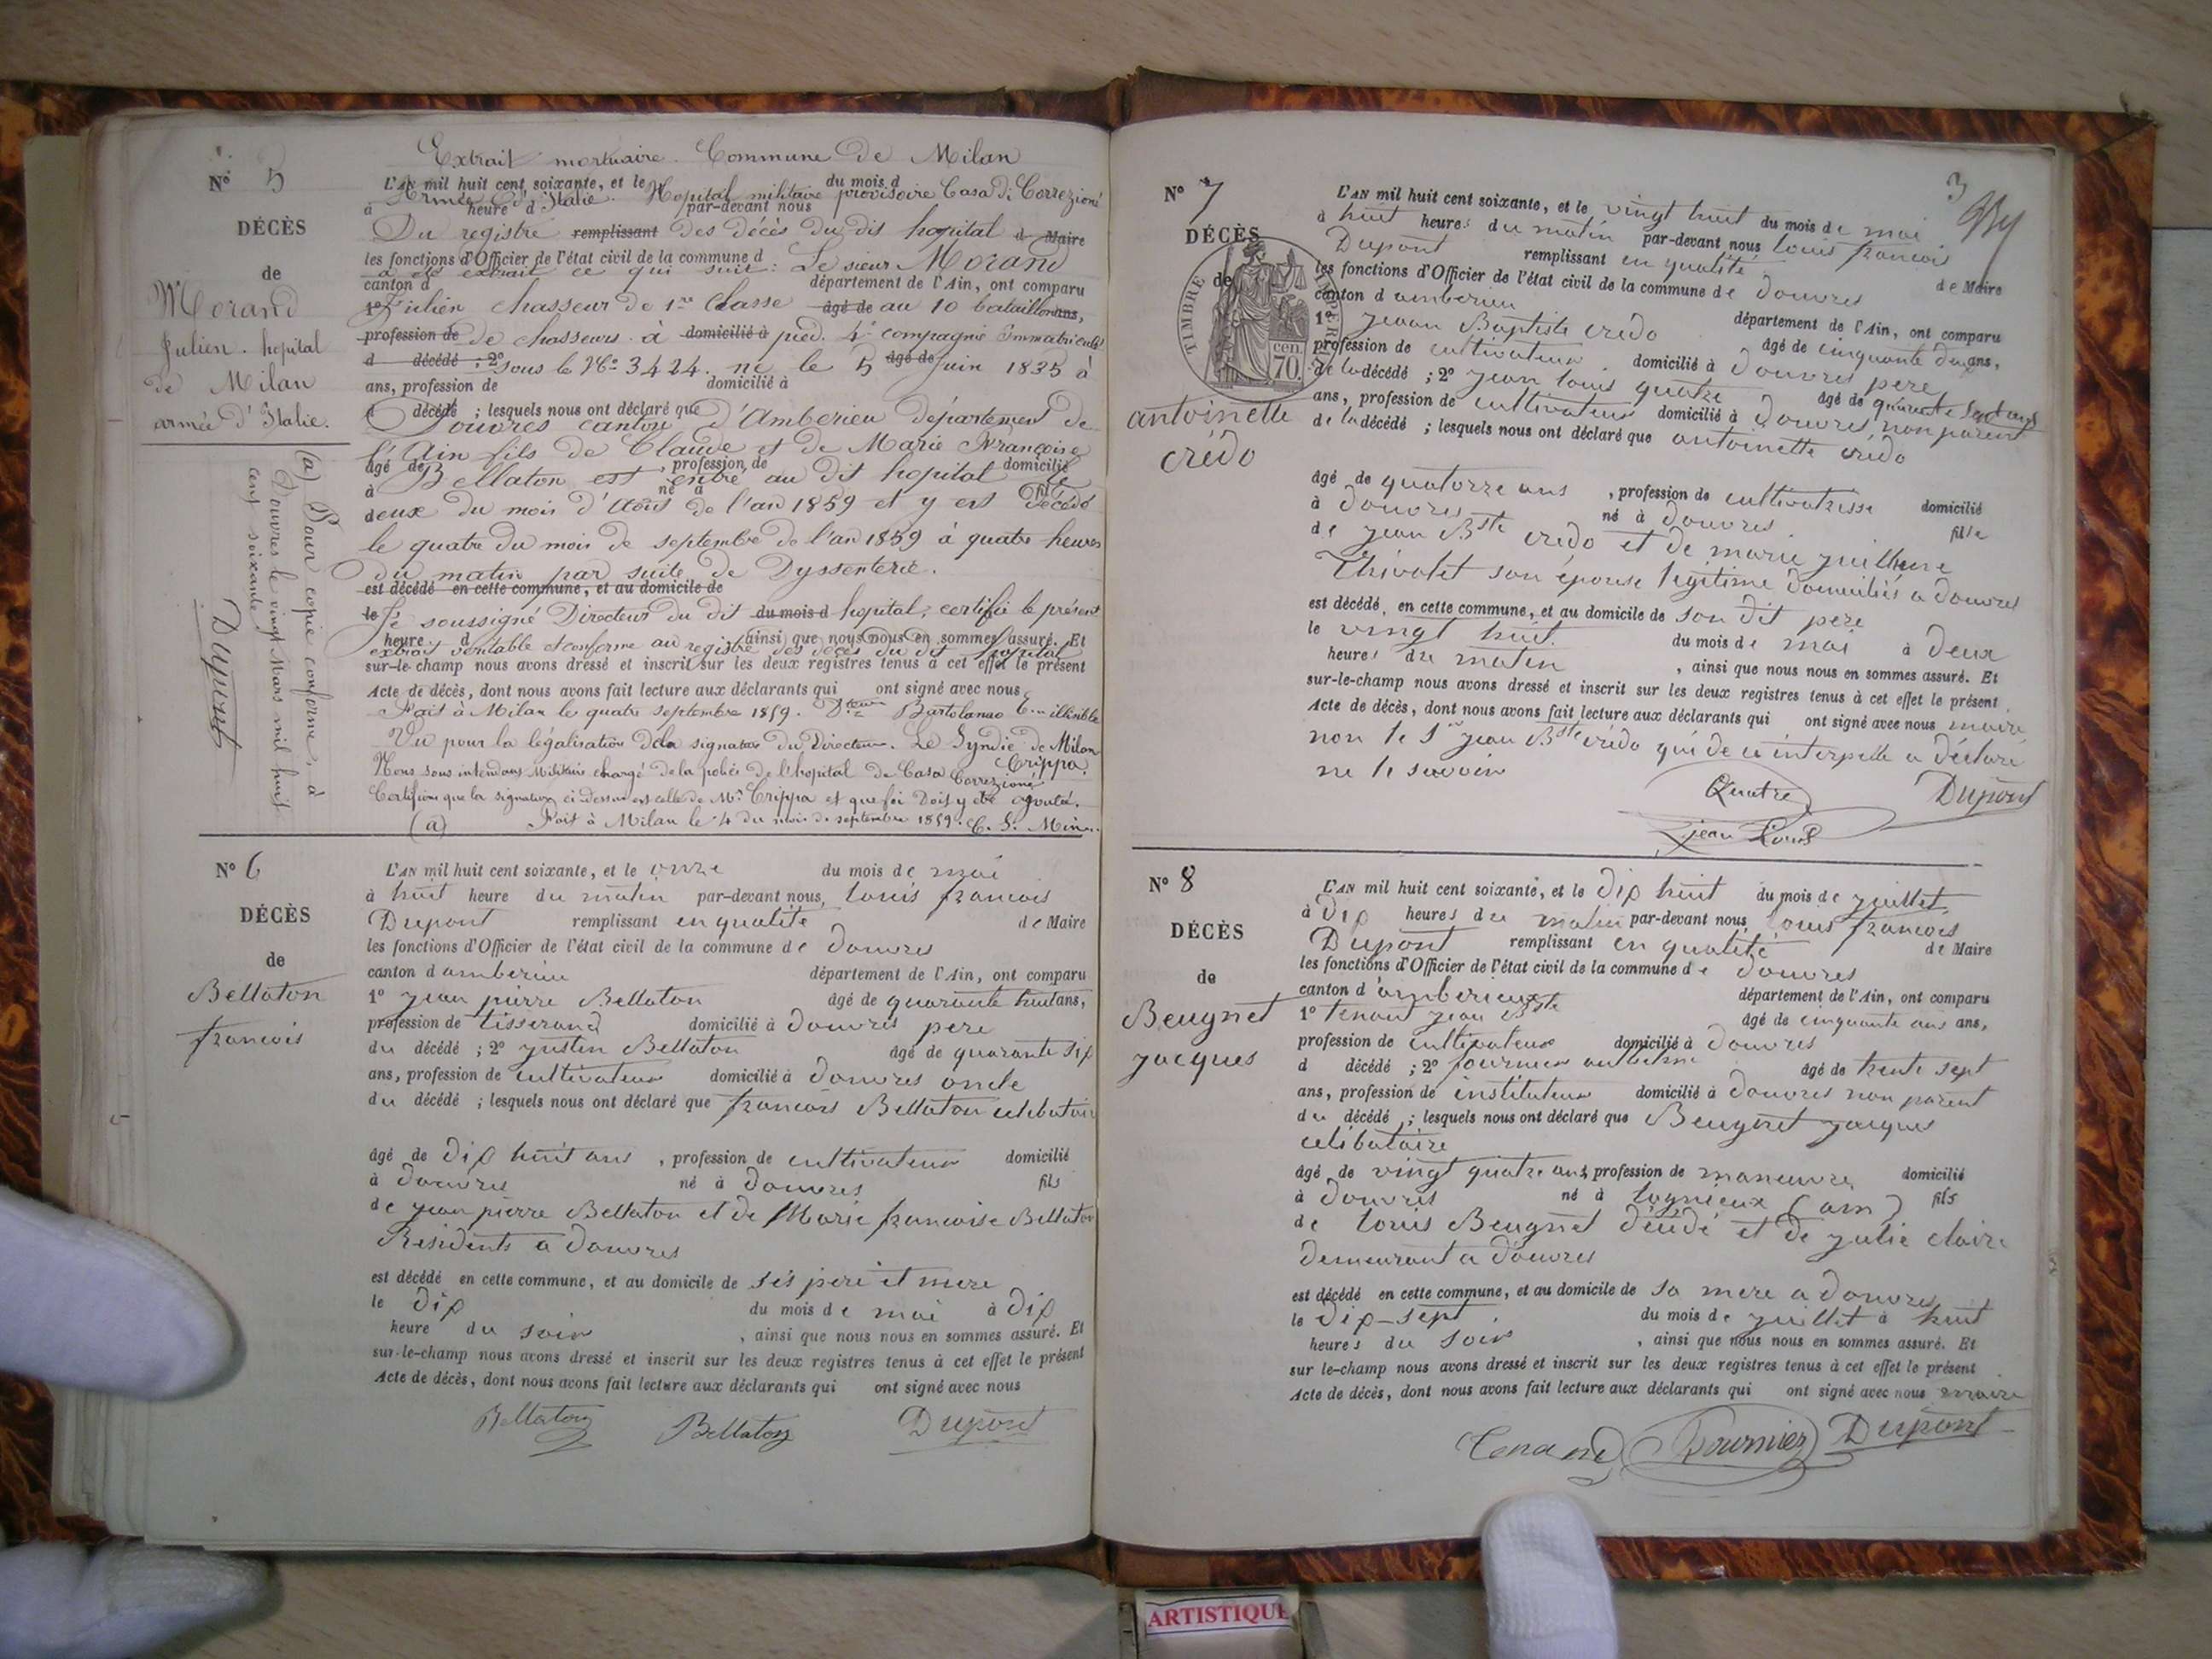 Extrait mortuaire. Commune de Milan
N° 5
L'AN mil huit cent soixante, et le du mois d
Armée d'Italie. Hopital militaire provisoire Casa di Correzioné
à heure d par-devant nous
DÉCÈS
Du registre remplissant des décès du dit hopital d Maire
les fonctions d'Officier de l'état civil de la commune d
a été extrait ce qui suit: Le sieur Morand
de
canton d département de l'Ain, ont comparu
Morand
1° Julien chasseur de 1re Classe âgé de au 10 bataillon ans,
Julien. hopital
profession de de chasseurs à domicilié à pied. 4e compagnie Immatriculé
de Milan
d décédé ; 2° sous le No 3424. né le 5 âgé de Juin 1835 à
armée d'Italie.
ans, profession de domicilié à
d décédé ; lesquels nous ont déclaré que
Douvres canton d'Amberieu departement de
l'Ain fils de Claude et de Marie Françoise
âgé de , profession de domicilié
Bellaton est entré au dit hopital le
à né à fil
deux du mois d'Aout de l'an 1859 et y est décédé
le quatre du mois de septembre de l'an 1859 à quatre heures
du matin par suite de Dyssenterie.
est décédé en cette commune, et au domicile de
le Je soussigné Directeur du dit du mois d hopital, certifie le présent
heure d , ainsi que nous nous en sommes assuré. Et
extrait veritable et conforme au registre des décès du dit hopital
sur-le-champ nous avons dressé et inscrit sur les deux registres tenus à cet effet le présent
Acte de décès, dont nous avons fait lecture aux déclarants qui ont signé avec nous
Fait à Milan le quatre septembre 1859. illisible
Vu pour la légalisation de la signature du Directeur. Le Syndic de Milan
Crippa.
Nous sous intendant Militaire chargé de la police de l'hôpital de Casa Correzioné
Certifions que la signature ci dessus est celle de Mr Crippa et que foi doit y être ajoutée.
(a) Fait à Milan le 4 du mois de septembre 1859.
(a) Pour copie conforme, à
Douvres le vingt Mars mil huit
cent soixante
Dupont
N° 6
L'AN mil huit cent soixante, et le onze du mois de mai
à huit heure du matin par-devant nous, louis francois
DÉCÈS
Dupont remplissant en qualité de Maire
les fonctions d'Officier de l'état civil de la commune de douvres
de
canton d amberieu département de l'Ain, ont comparu
Bellaton
1° jean pierre Bellaton âgé de quarante huit ans,
francois
profession de tisserand domicilié à douvres pere
du décédé ; 2° justin Bellaton âgé de quarante six
ans, profession de cultivateur domicilié à douvres oncle
du décédé ; lesquels nous ont déclaré que francois Bellaton celibataire
âgé de dix huit ans , profession de cultivateur domicilié
à douvres né à douvres fils
de jean pierre Bellaton et de Marie francoise Bellaton
Residents a douvres
est décédé en cette commune, et au domicile de ses pere et mere
le dix du mois de mai à dix
heure du soir , ainsi que nous nous en sommes assuré. Et
sur-le-champ nous avons dressé et inscrit sur les deux registres tenus à cet effet le présent
Acte de décès, dont nous avons fait lecture aux déclarants qui ont signé avec nous
Bellaton Bellaton Dupont
3
N° 7
L'AN mil huit cent soixante, et le vingt huit du mois de mai
à huit heures du matin par-devant nous louis francois
DÉCÈS
Dupont remplissant en qualité de Maire
de
les fonctions d'Officier de l'état civil de la commune de douvres
canton d amberieu département de l'Ain, ont comparu
TIMBRE IMPERIAL
cen. 70.
1° jean Baptiste crédo âgé de cinquante deux ans,
profession de cultivateur domicilié à douvres pere
de la décédé ; 2° jean louis quatre âgé de quarante sept ans
antoinette
ans, profession de cultivateur domicilié à douvres non parent
crédo
de la décédé ; lesquels nous ont déclaré que antoinette crédo
âgé de quatorze ans , profession de cultivatrisse domicilié
à douvres né à douvres fille
de jean Bste crédo et de marie juilherme
thivolet son épouse légitime domiciliés a douvres
est décédé, en cette commune, et au domicile de son dit pere
le vingt huit du mois de mai à deux
heures du matin , ainsi que nous nous en sommes assuré. Et
sur-le-champ nous avons dressé et inscrit sur les deux registres tenus à cet effet le présent
Acte de décès, dont nous avons fait lecture aux déclarants qui ont signé avec nous maire
non le sr jean Bste crédo qui de ce interpellé a déclaré
ne le savoir
Quatre Dupont
jean Louis
N° 8
L'AN mil huit cent soixante, et le dix huit du mois de juillet
à dix heures du matin par-devant nous, louis francois
DÉCÈS
Dupont remplissant en qualité de Maire
les fonctions d'Officier de l'état civil de la commune de douvres
de
canton d'amberieux département de l'Ain, ont comparu
Beugnet
1° tenant jean Bste âgé de cinquante ans ans,
jacques
profession de cultivateur domicilié à douvres
d décédé ; 2° fournier anthelme âgé de trente sept
ans, profession de instituteur domicilié à douvres non parent
du décédé ; lesquels nous ont déclaré que Beugnet jacques
celibataire
âgé de vingt quatre ans, profession de maneuvre domicilié
à douvres né à lagnieux (ain) fils
de louis Beugnet décédé et de julie claire
demeurant a douvres
est décédé en cette commune, et au domicile de sa mere a douvres
le dix-sept du mois de juillet à huit
heures du soir , ainsi que nous nous en sommes assuré. Et
sur le-champ nous avons dressé et inscrit sur les deux registres tenus à cet effet le présent
Acte de décès, dont nous avons fait lecture aux déclarants qui ont signé avec nous maire
Tenand Fournier Dupont
ARTISTIQUE